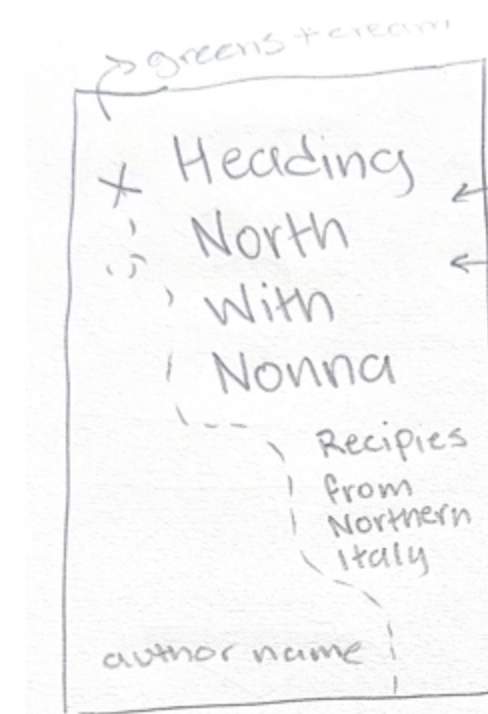 greens + cream
Heading
North
With
Nonna
Recipies
from
Northern
Italy
author name